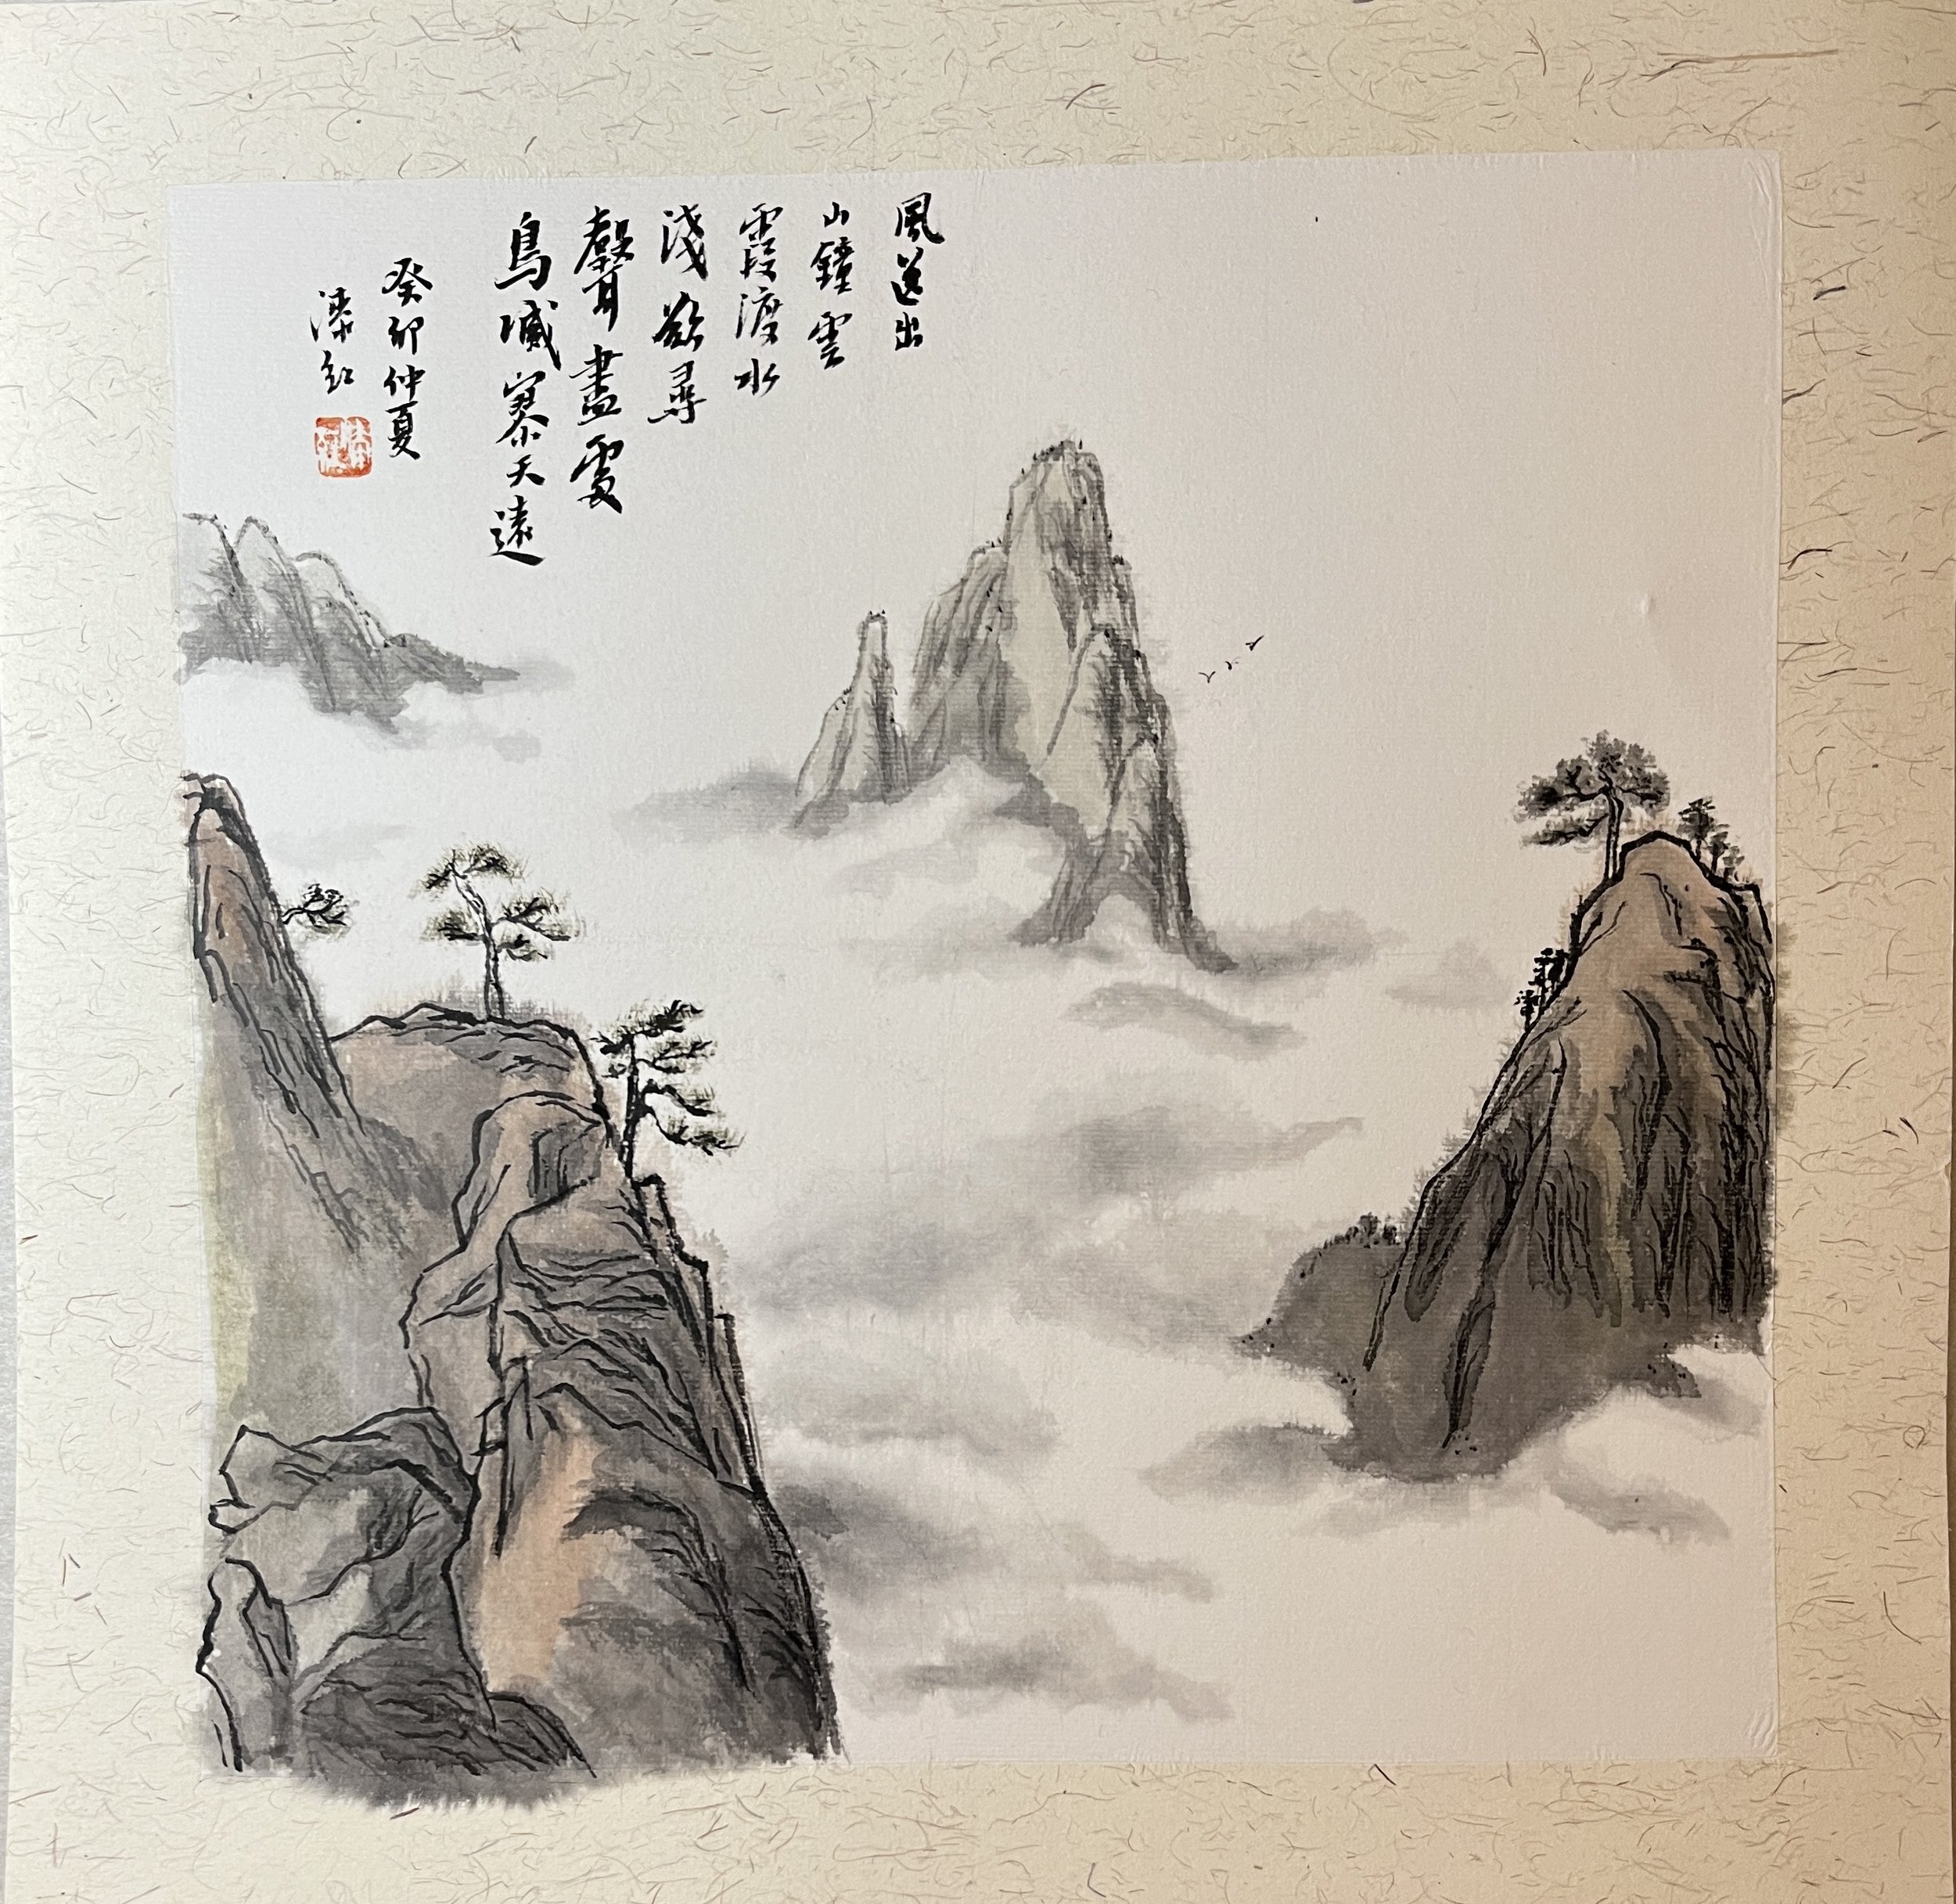 風送出
山鐘雲
霞渡水
淺欲尋
聲盡處
鳥滅寥天遠
癸卯仲夏